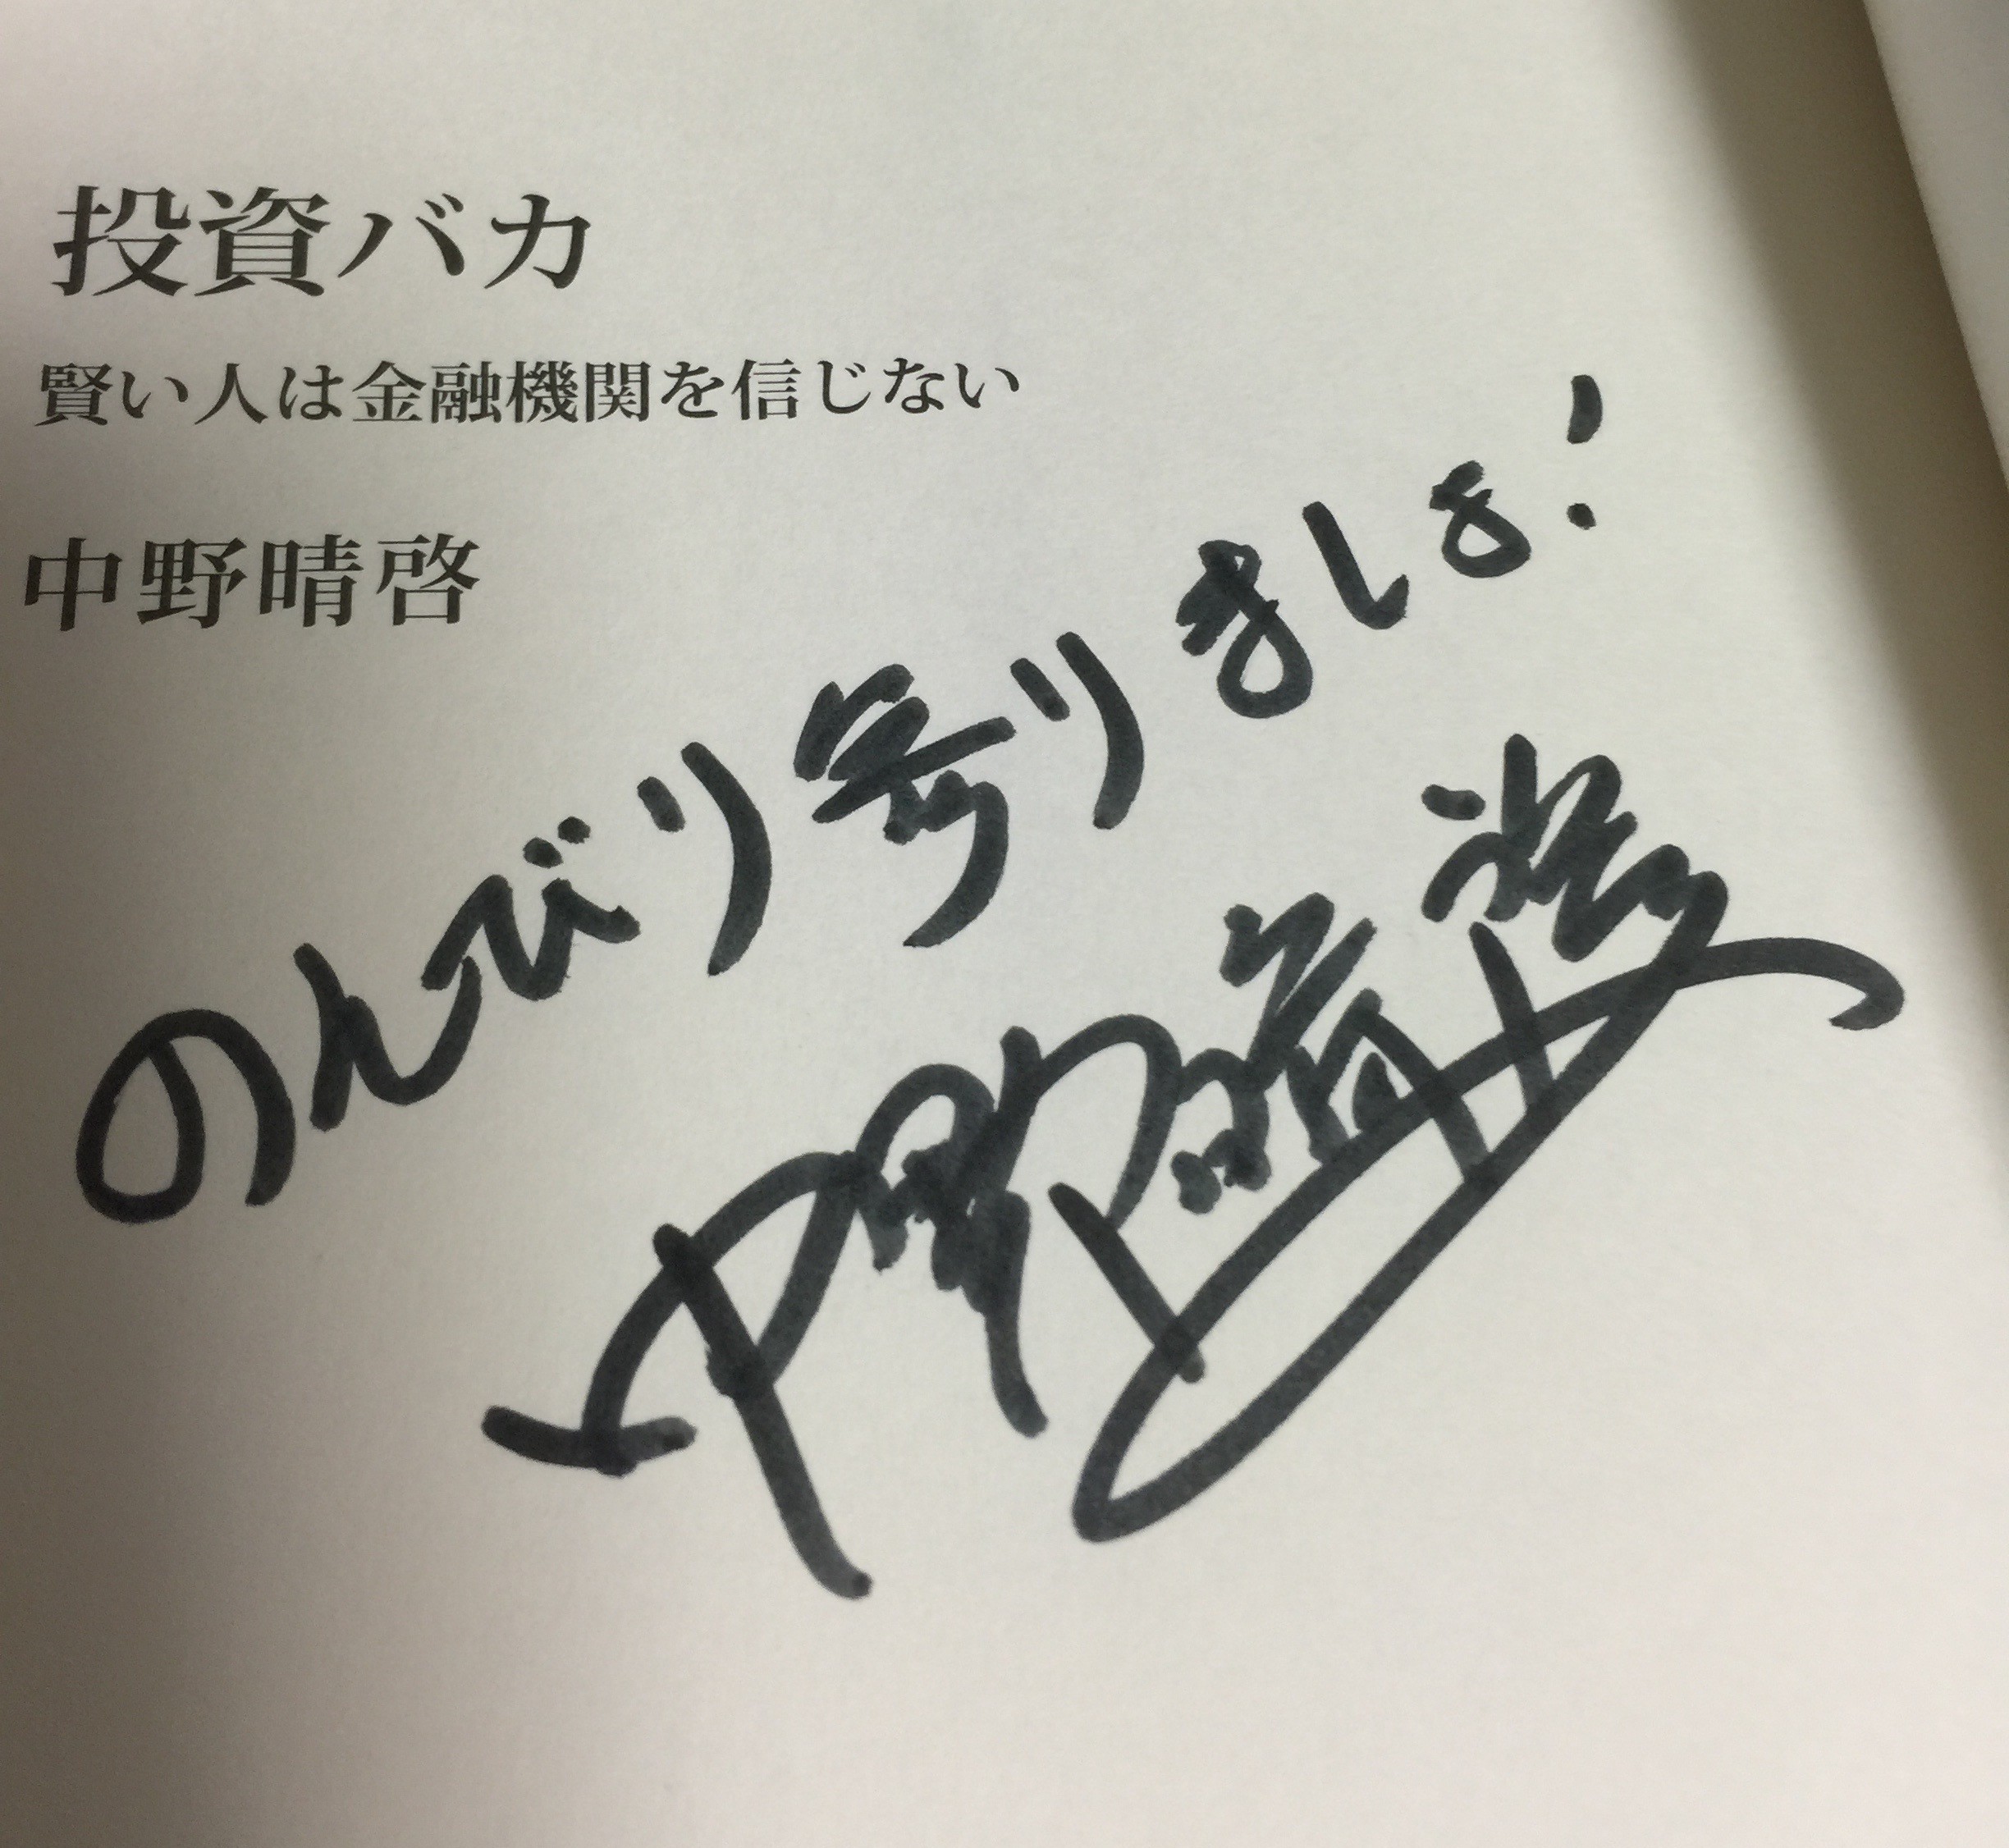 投資バカ
賢い人は金融機関を信じない
中野晴啓
のんびり参りましょ!
中野晴啓